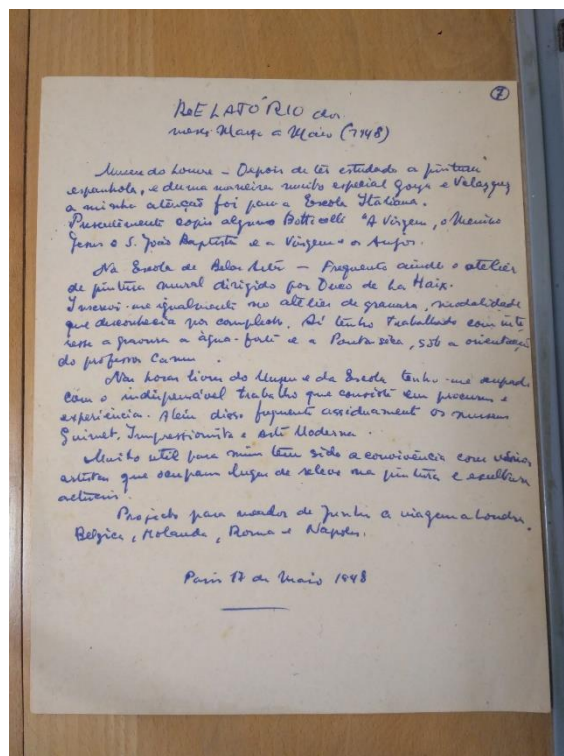 7
RELATÓRIO dos
meses Março a Maio (1948)
Museu do Louvre – Depois de ter estudado a pintura
espanhola, e duma maneira muito especial Goya e Velazquez
a minha atenção foi para a Escola Italiana.
Presentemente copio alguns Botticelli "A Virgem, o Menino
Jesus e S. João Baptista e a Virgem e os Anjos.
Na Escola de Belas Artes – Frequento ainda o atelier
de pintura mural dirigido por Duco de La Haix.
Inscrevi-me igualmente no atelier de gravura, modalidade
que desconhecia por completo. Aí tenho trabalhado com inte
resse a gravura a água-forte e a Ponta seca, sob a orientação
do professor Camus.
Nas horas livres do Museu e da Escola tenho-me ocupado
com o indispensável trabalho que consiste em procura e
experiência. Além disso frequento assiduamente os museus
Guimet, Impressionista e Arte Moderna.
Muito util para mim tem sido a convivência com vários
artistas que ocupam lugar de relevo na pintura e escultura
actuais.
Projecto para meados de Junho a viagem a Londres,
Belgica, Holanda, Roma e Napoles.
Paris 17 de Maio 1948